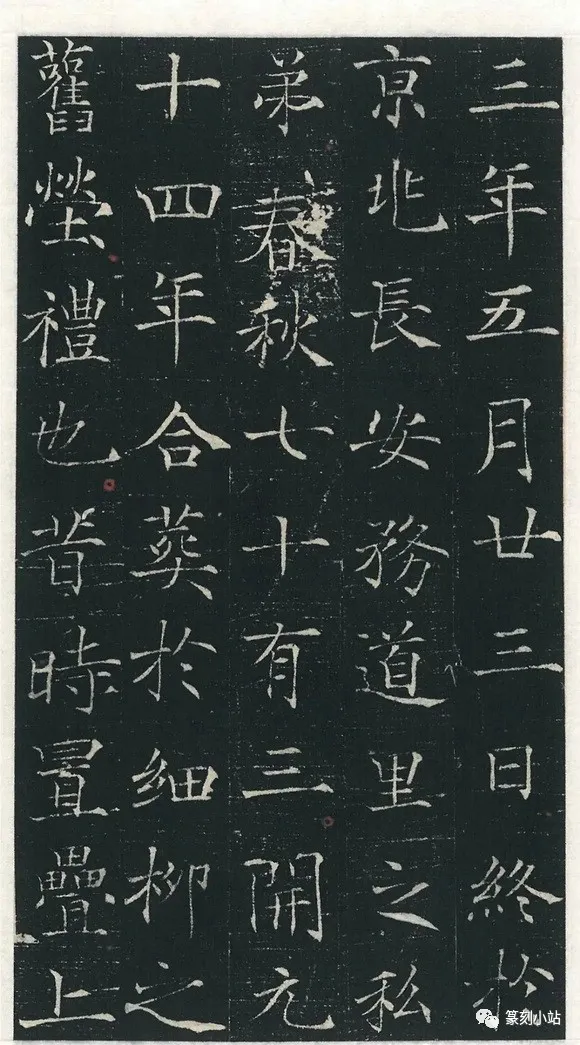 三年五月廿三日終於
京兆長安務道里之私
弟春秋七十有三開元
十四年合葬於細柳之
舊塋禮也昔時置罍上
篆刻小站